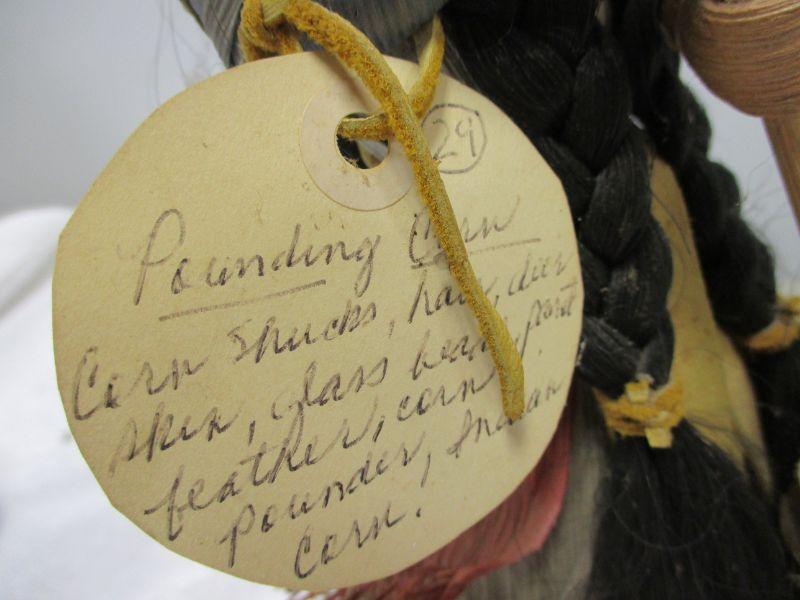 29
Pounding Corn
Corn shucks, hair, deer
skin, glass beads,
feather, corn
pounder, Indian
Corn.